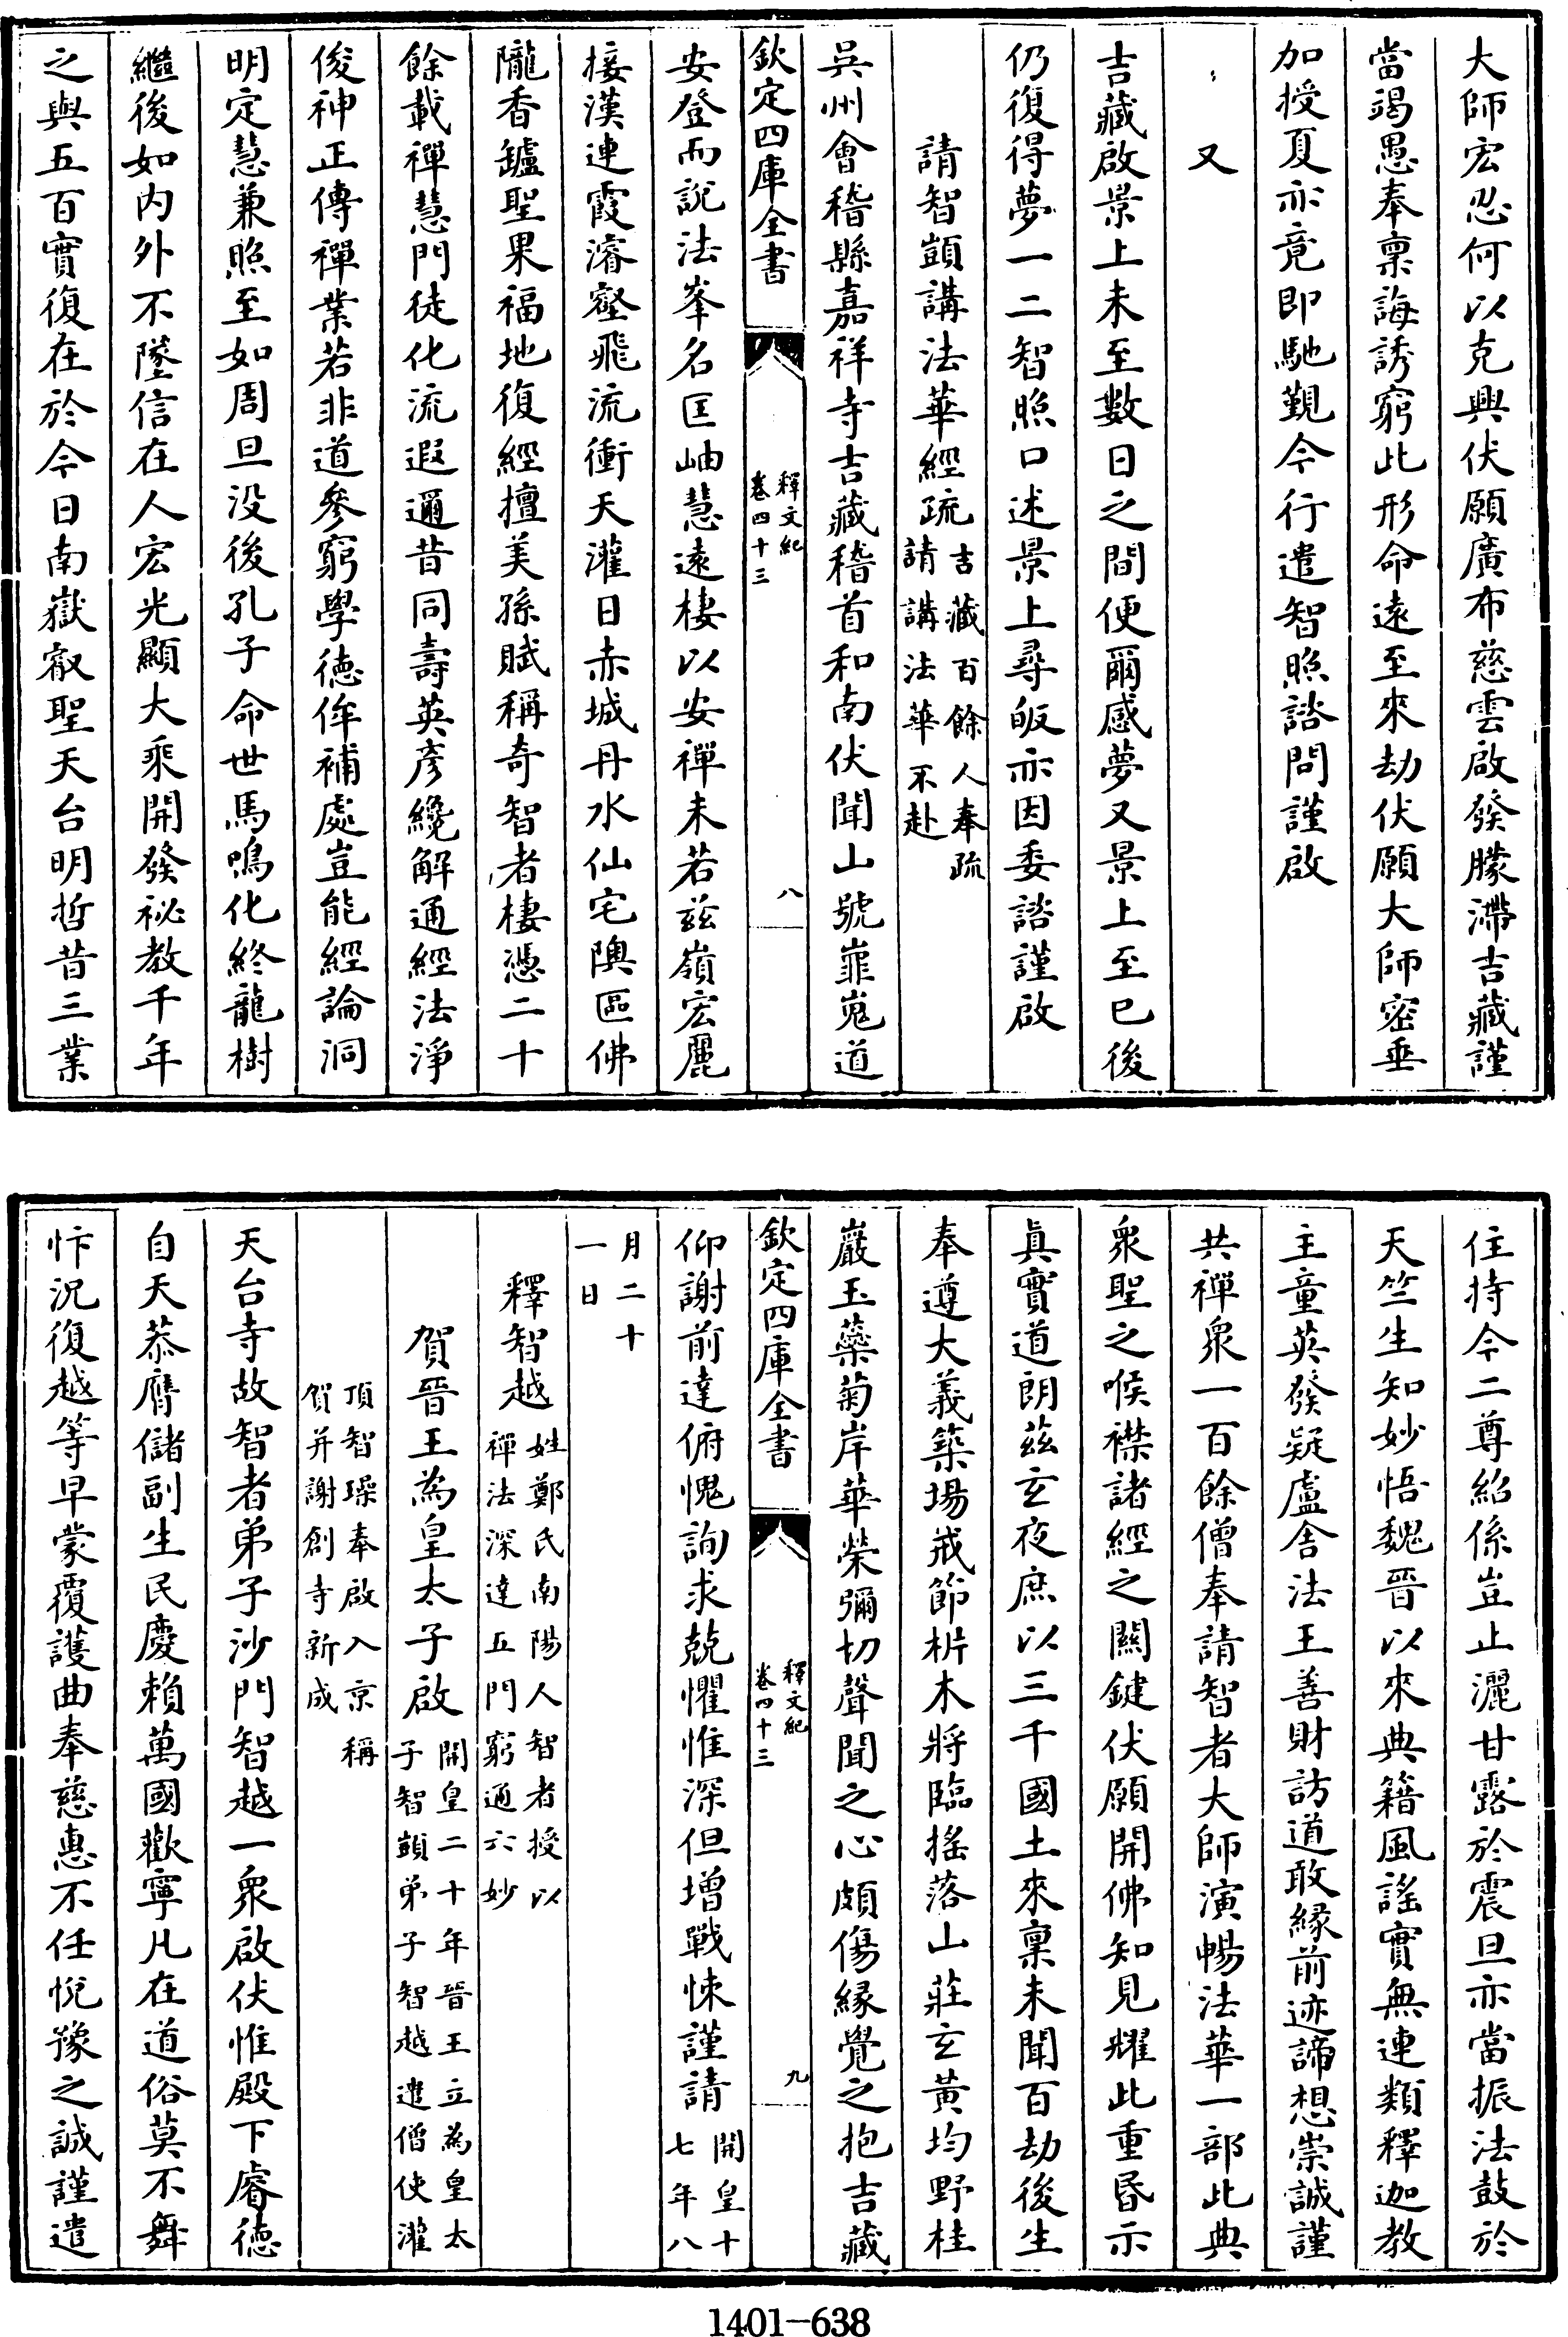 大師宏忍何以克興伏願廣布慈雲啟發朦滯吉藏謹
當竭愚奉稟誨誘窮此形命遠至來劫伏願大師密垂
加授夏亦竟即馳覲今行遣智照諮問謹啟
又
吉藏啟景上未至數日之間便爾感夢又景上至已後
仍復得夢一二智照口述景上尋皈亦因委諮謹啟
請智顗講法華經疏吉藏百餘人奉疏
請講法華不赴
吳州會稽縣嘉祥寺吉藏稽首和南伏聞山號崔嵬道
欽定四庫全書
釋文紀
卷四十三
八
安登而說法峯名匡岫慧遠棲以安禪未若茲嶺宏麗
接漢連霞濬壑飛流衝天灌日赤城丹水仙宅隩區佛
隴香鑪聖果福地復經擅美孫賦稱奇智者棲憑二十
餘載禪慧門徒化流遐邇昔同壽英彥纔解通經法淨
俊神正傳禪業若非道參窮學德侔補處豈能經論洞
明定慧兼照至如周旦没後孔子命世馬鳴化終龍樹
繼後如内外不墜信在人宏光顯大乘開發祕教千年
之與五百實復在於今日南嶽叡聖天台明哲昔三業
住持今二尊紹係豈止灑甘露於震旦亦當振法鼓於
天竺生知妙悟魏晉以來典籍風謠實無連類釋迦教
主童英發疑盧舍法王善財訪道敢緣前迹諦想崇誠謹
共禪衆一百餘僧奉請智者大師演暢法華一部此典
衆聖之喉襟諸經之關鍵伏願開佛知見耀此重昏示
眞實道朗茲玄夜庶以三千國土來稟未聞百劫後生
奉遵大義築場戒節析木將臨搖落山莊玄黃均野桂
巖玉蘂菊岸華榮彌切聲聞之心頗傷緣覺之抱吉藏
欽定四庫全書
釋文紀
卷四十三
九
仰謝前達俯愧詢求兢懼惟深但增戰悚謹請開皇十
七年八
月二十
一日
釋智越姓鄭氏南陽人智者授以
禪法深達五門窮通六妙
賀晉王為皇太子啟開皇二十年晉王立為皇太
子智顗弟子智越遣僧使灌
頂智璪奉啟入京稱
賀并謝創寺新成
天台寺故智者弟子沙門智越一衆啟伏惟殿下睿德
自天恭膺儲副生民慶賴萬國歡寧凡在道俗莫不舞
忭況復越等早蒙覆護曲奉慈惠不任悅豫之誠謹遣
1401-638